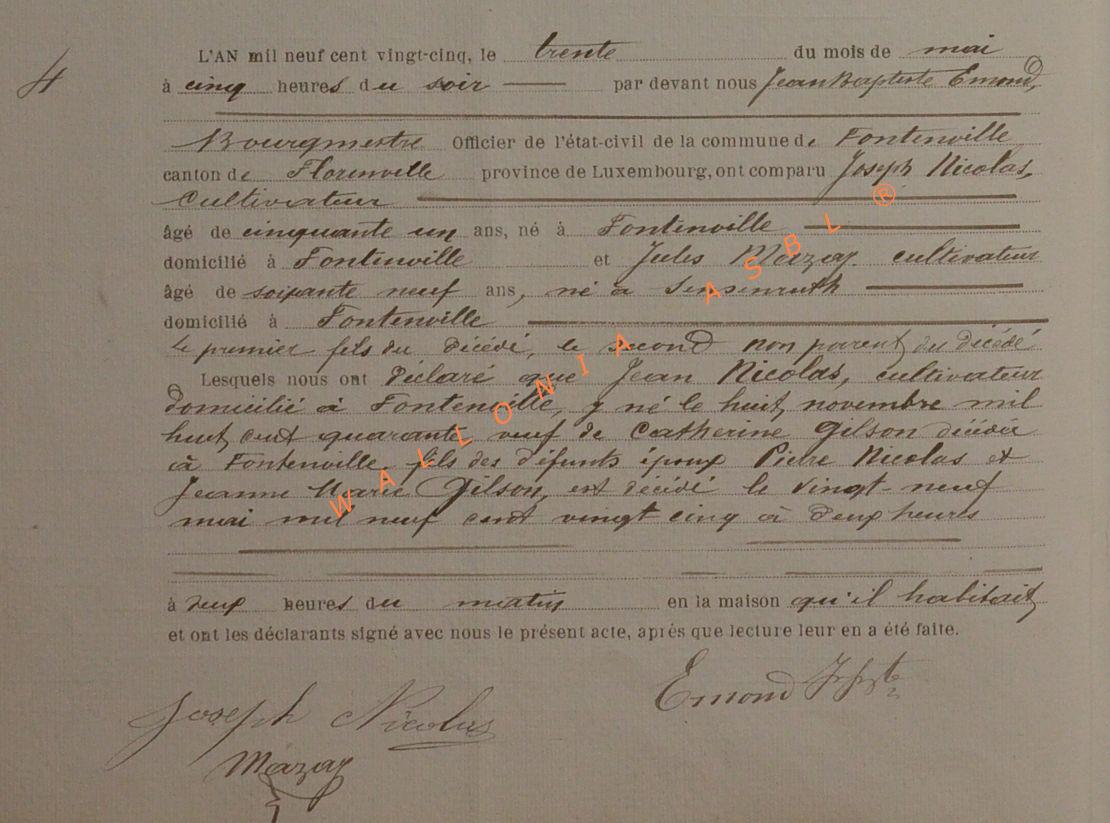 4
L'AN mil neuf cent vingt-cinq, le trente du mois de mai
à cinq heures du soir par devant nous Jean Baptiste Emond,
Bourgmestre Officier de l'état-civil de la commune de Fontenville
canton de Florenville province de Luxembourg, ont comparu Joseph Nicolas,
Cultivateur
âgé de cinquante un ans, né à Fontenville
domicilié à Fontenville et Jules Mazay cultivateur
âgé de soixante neuf ans, né à Sensenruth
domicilié à Fontenville
le premier fils du décédé, le second non parent du décédé
Lesquels nous ont déclaré que Jean Nicolas, cultivateur
domicilié à Fontenville, y né le huit novembre mil
huit cent quarante veuf de Catherine Gilson décédée
à Fontenville, fils des défunts époux Pierre Nicolas et
Jeanne Marie Gilson, est décédé le vingt-neuf
mai mil neuf cent vingt cinq à deux heures
à deux heures du matin en la maison qu'il habitait
et ont les déclarants signé avec nous le présent acte, après que lecture leur en a été faite.
Emond
Joseph Nicolas
Mazay
WALLONIA ASBL ®